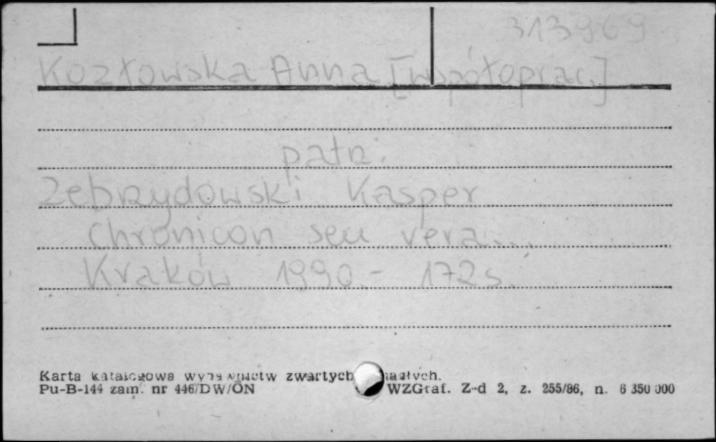 313969
Kozłowska Anna [współoprac.]
patrz:
Zebrzydowski Kasper
Chronicon seu vera...
Kraków 1990.- 172 s.
Karta katalogowa wydawnictw zwartych
Pu-B-144 zam. nr 446/DW/ON WZGraf. Z-d 2, z. 255/86, n. 6 350 000